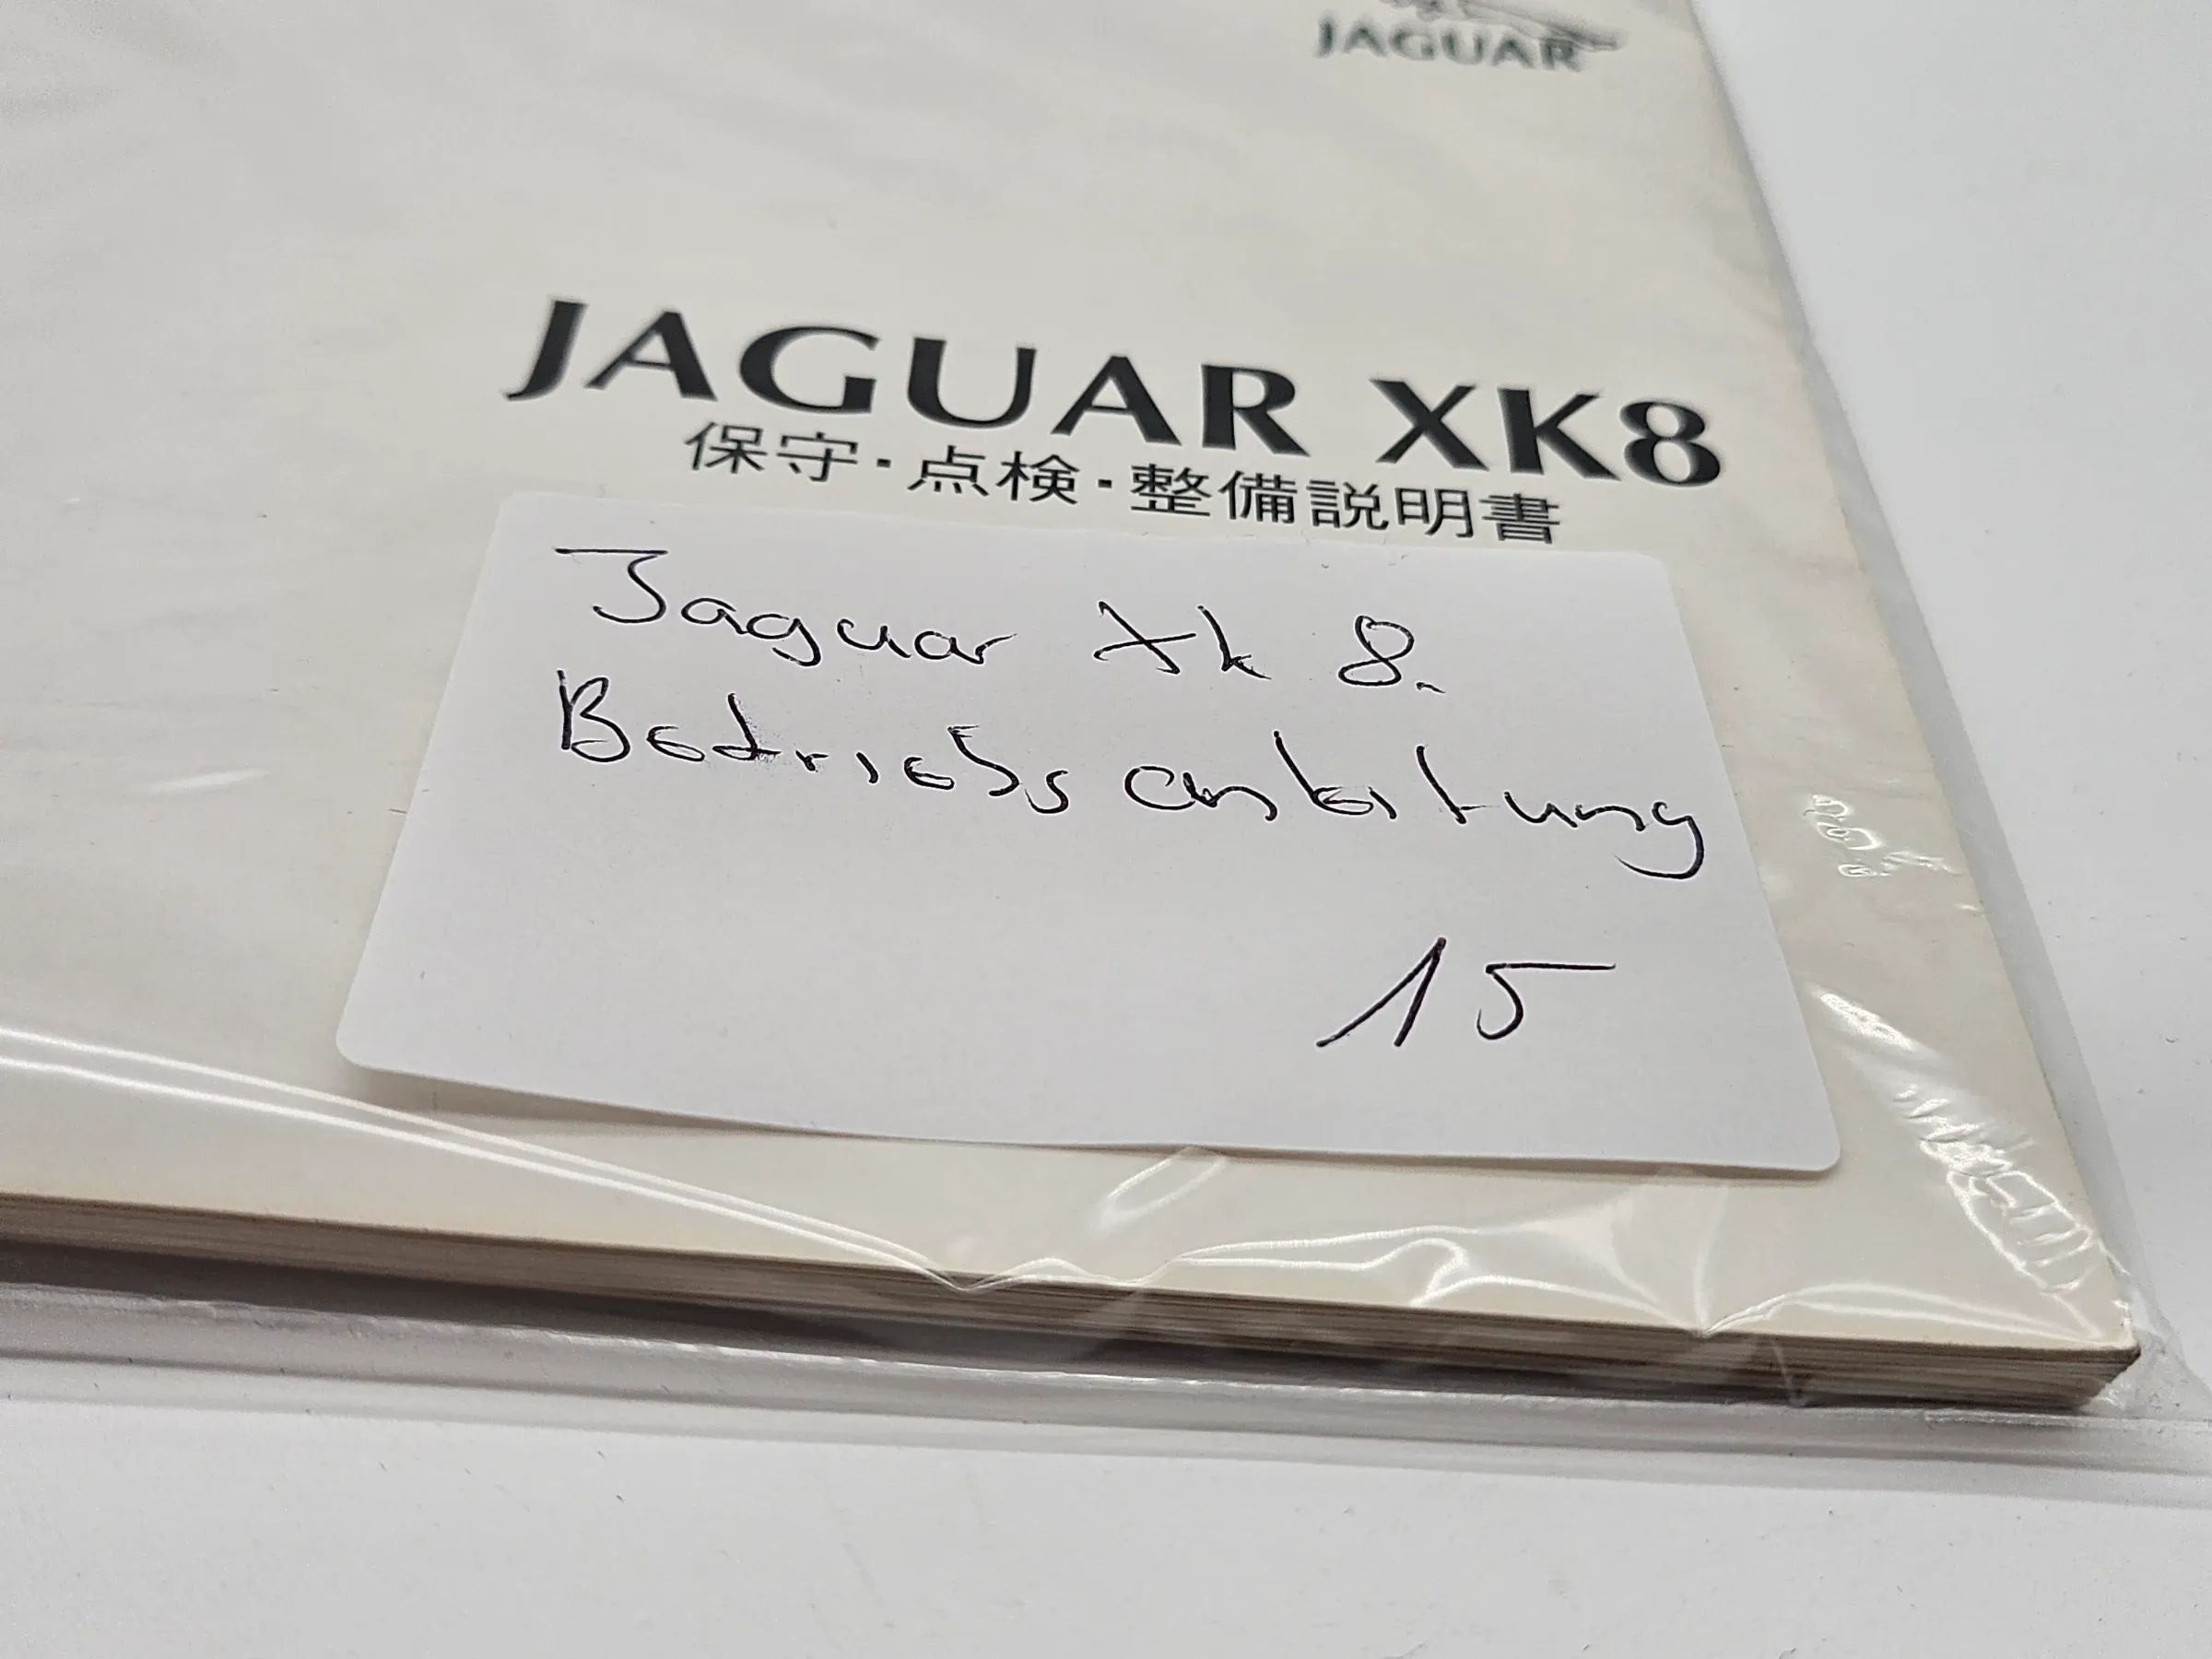 JAGUAR
JAGUAR XK8
保守・点検・整備説明書
Jaguar Xk 8.
Betriebsanleitung
15